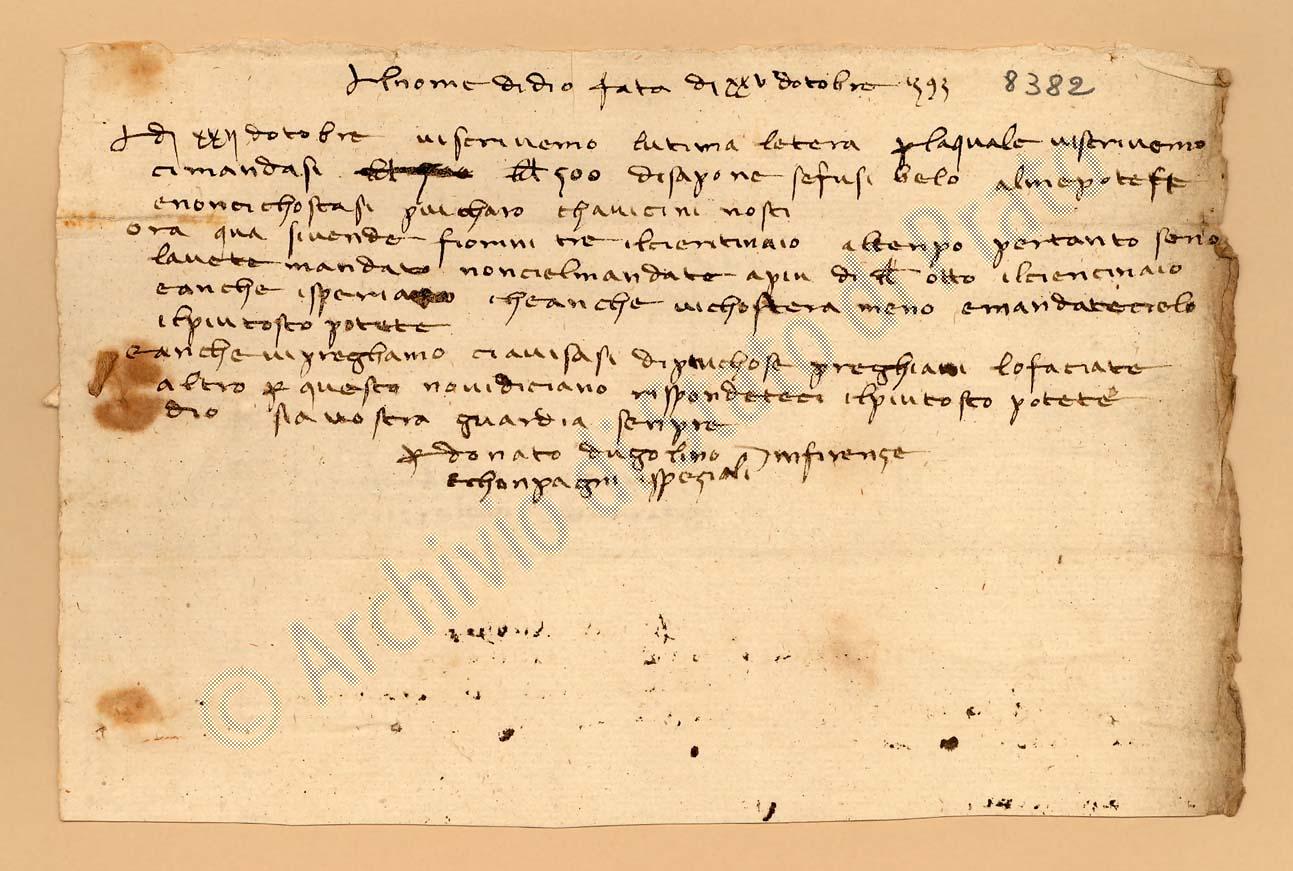 Al nome di dio fata di xxv dotobre 1393 8382
A di xxii dotobre vi scrivemo lutima letera p laquale vi scrivemo
ci mandasi lb 500 di sapone se fusi belo
e non ci chostasi piu charo cha vicini nosti
Ora qua si vende fiorini tre il cientinaio al tenpo per tanto se no
lavete mandato non ciel mandate a piu di lb otto il ciencinaio
e anche isperia che anche vi chostera meno e mandatecielo
il piu tosto potete
e anche vi preghamo ci avisasi di piu chose preghiavi lo faciate
altro p questo no vi diciano rispondeteci il piu tosto potete
dio sia vostra guardia senpre
p donato dugolino in firenze
e chonpagni ispeziali
© Archivio di Stato di Prato